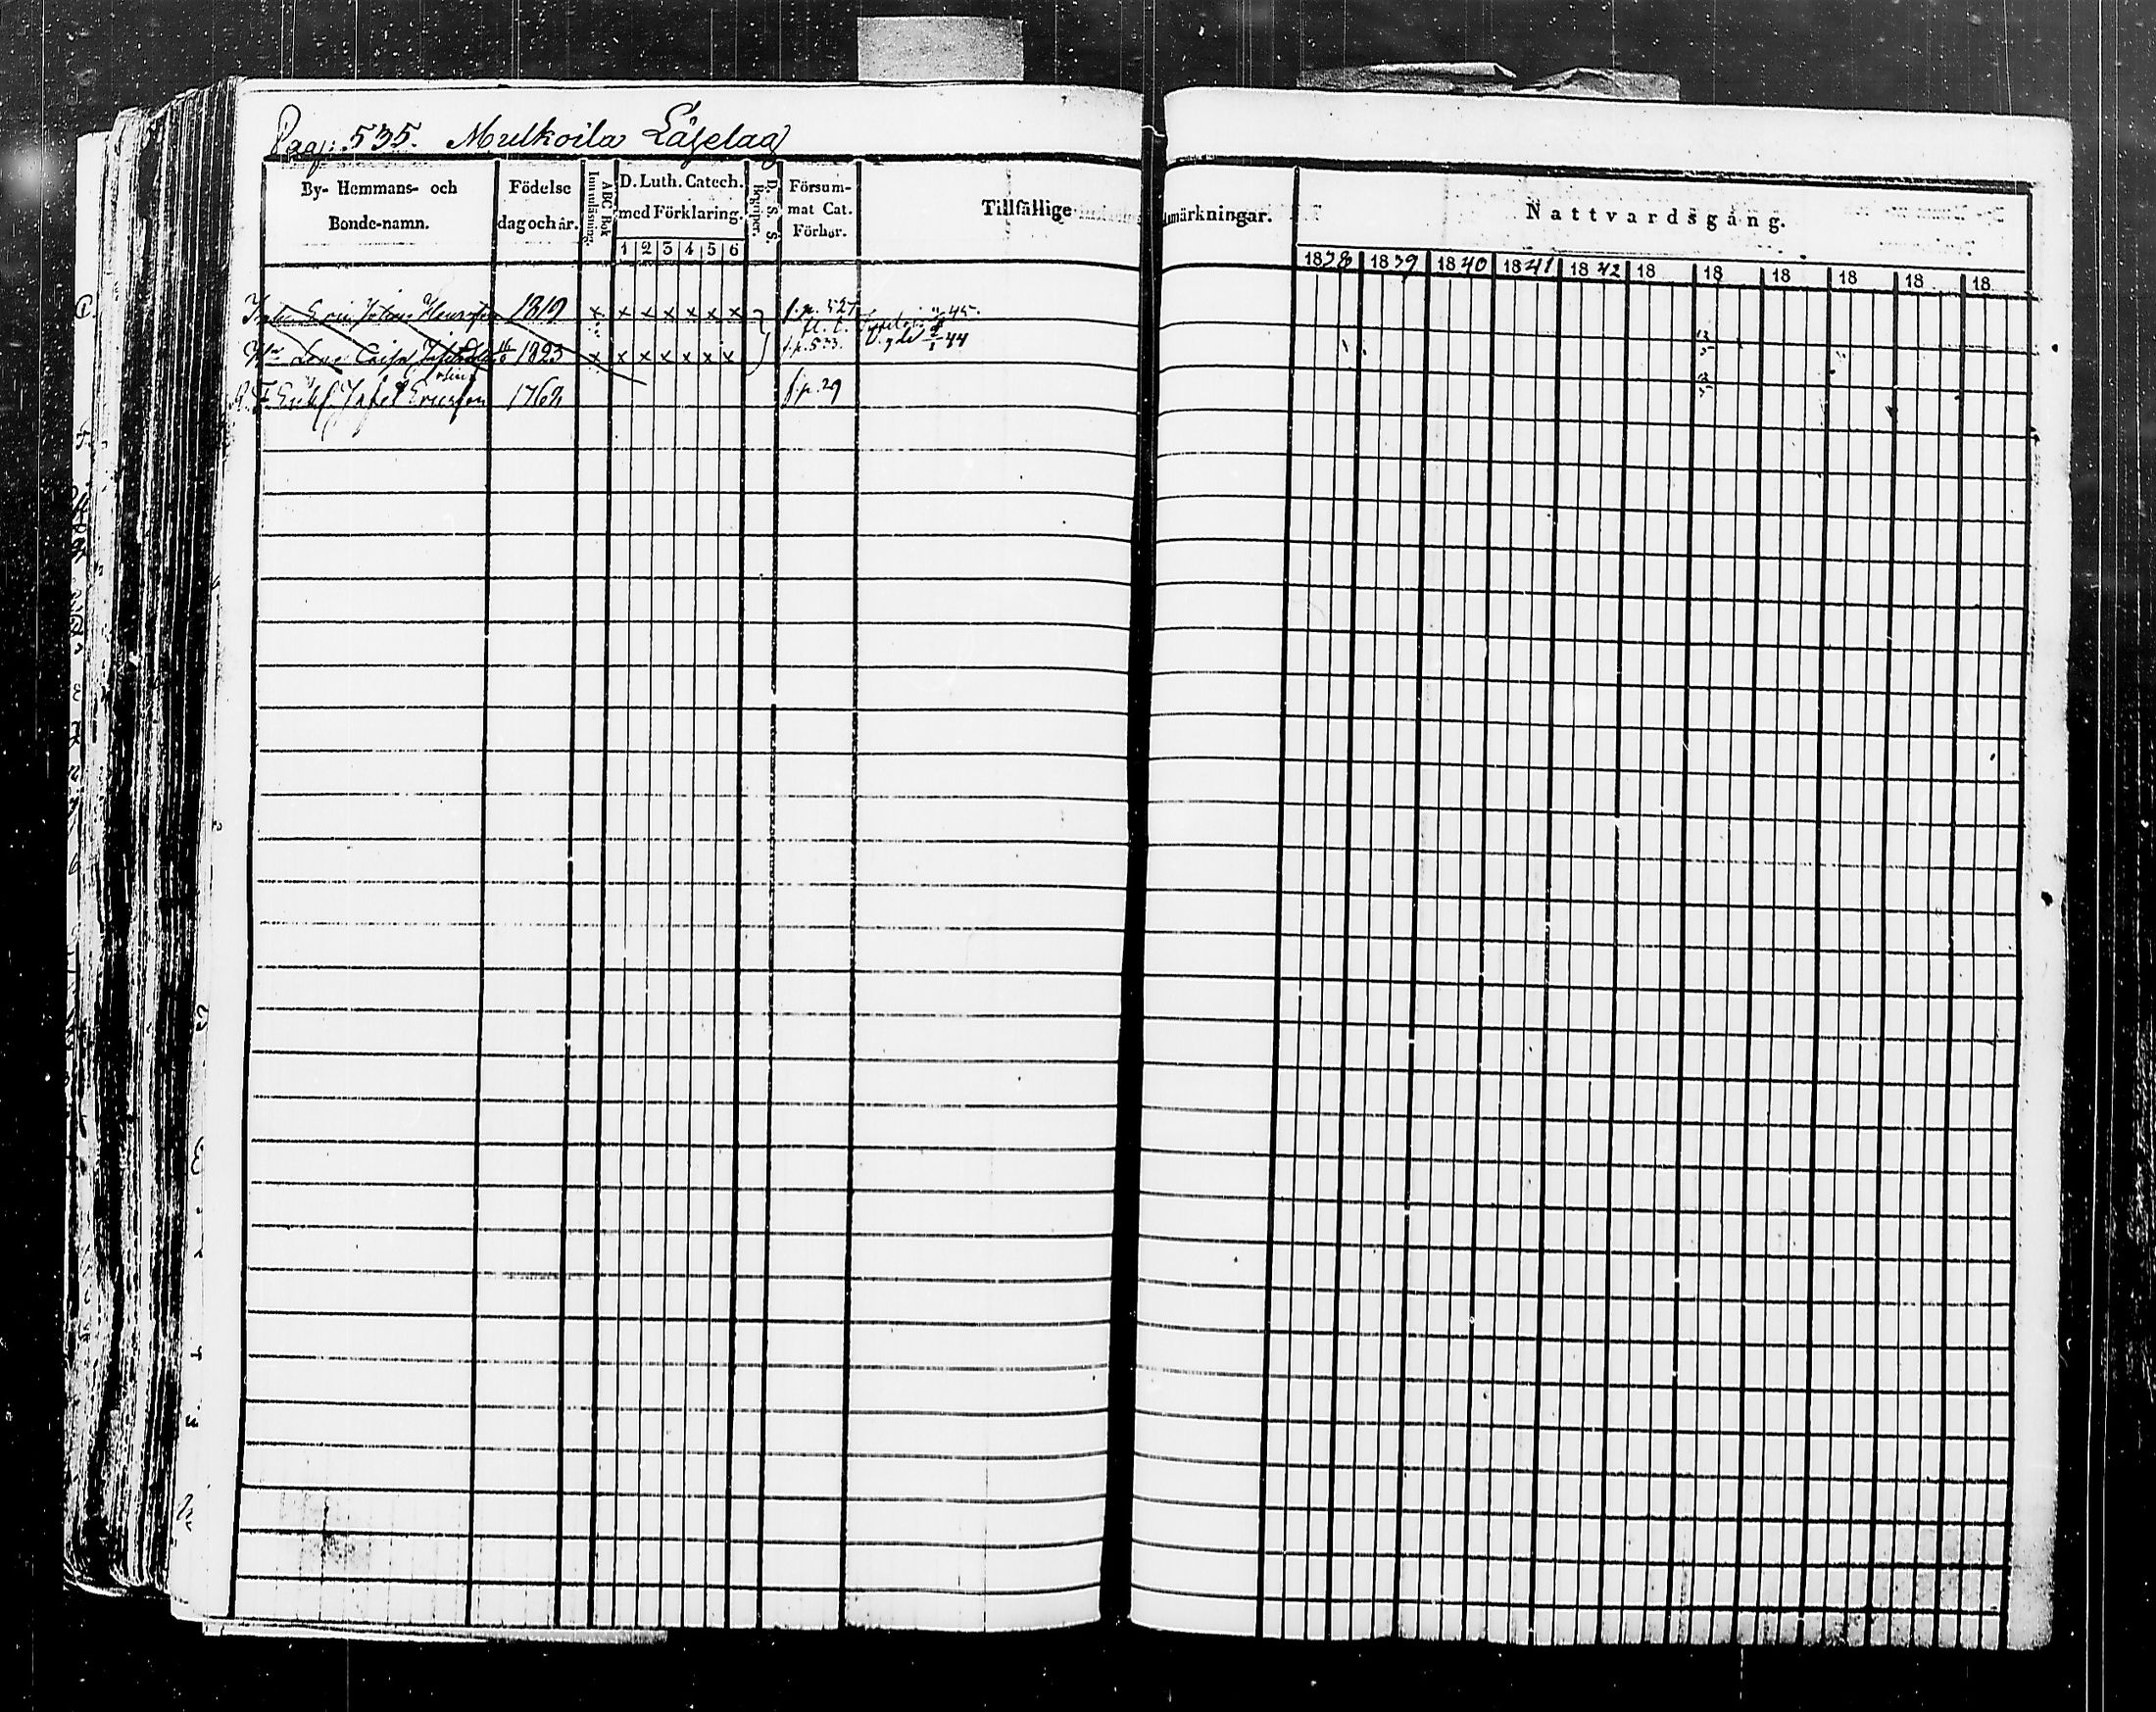 Pag: 535. Mulkoila Läselag
By- Hemmans- och Bonde-namn.
Födelse dag och år.
ABC Bok Innanläsning.
D. Luth. Catech. med Förklaring.
1 2 3 4 5 6
D. S. S. Begreper.
Försummat Cat. Förhör.
Tillfällige Anmärkningar.
Nattvardsgång.
1838 1839 1840 1841 1842 18 18 18 18 18 18
Eric Johan Henrsson 1819 x x x x x x x f. p. 527 45.
fl. t.
Hu Lena Caisa 1823 x x x x x x x f. p. 533. Vigde 44
12 5
Enkl. Ericsson 1762 f. p. 29
12 5